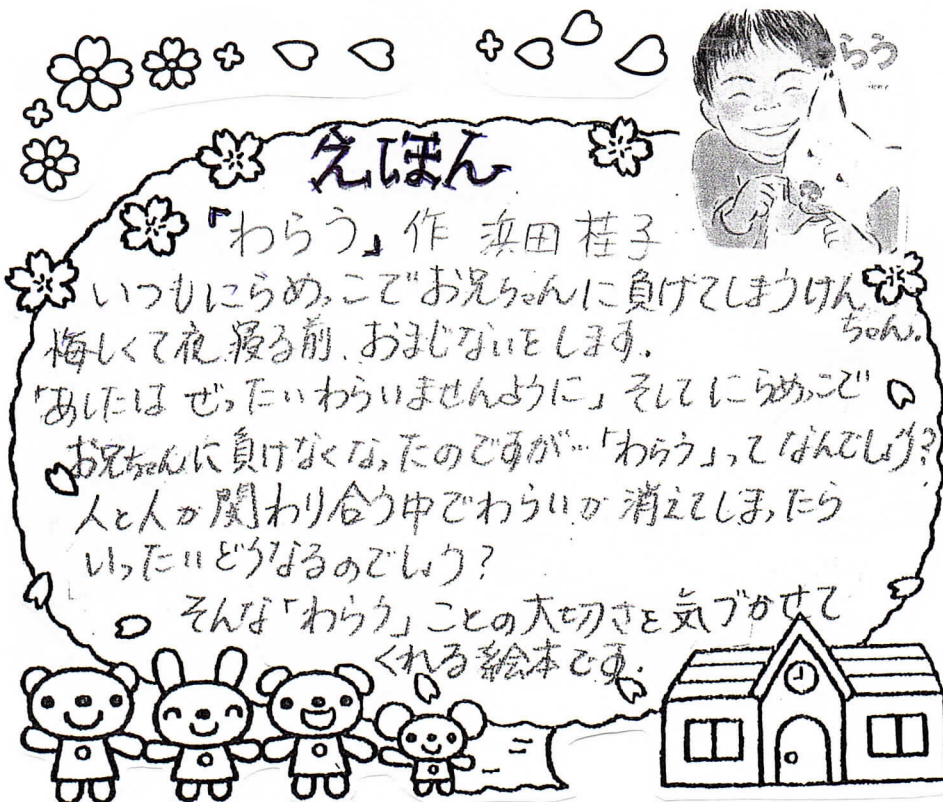 らう
えほん
「わらう」作 浜田桂子
いつもにらめっこでお兄ちゃんに負けてしまうけん
ちゃん。
悔しくて夜寝る前、おまじないをします。
「あしたは ぜったいわらいませんように」そしてにらめっこで
お兄ちゃんに負けなくなったのですが…「わらう」ってなんでしょう?
人と人が関わり合う中でわらいが消えてしまったら
いったいどうなるのでしょう?
そんな「わらう」ことの大切さを気づかせて
くれる絵本です。